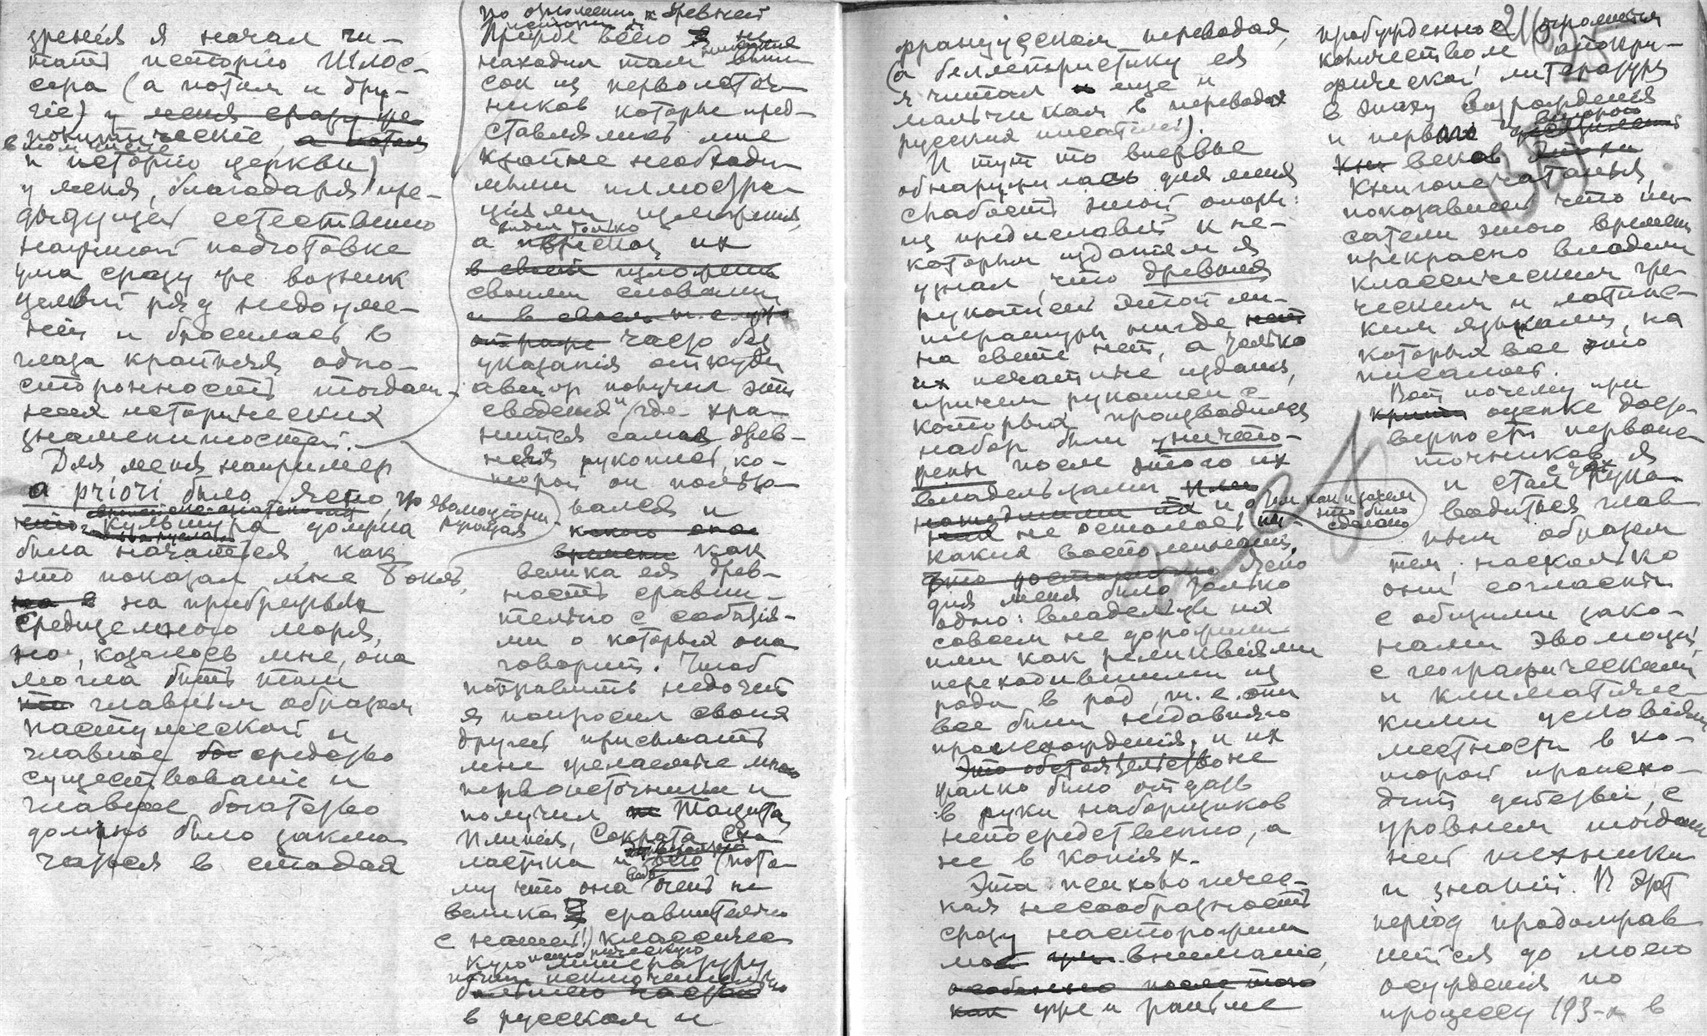 зренія я начал чи-
тать исторію Шлос-
сера (а потом и дру-
гіе) у меня сразу же
в том числе
и исторію церкви)
у меня, благодаря пре-
дыдущей естественно
научной подготовке
ума сразу же возник
целый ряд недоуме-
ній и бросилась в
глаза крайняя одно-
сторонность тогдаш-
них исторических
знаменитостей.
Для меня например
a priori было ясно, что
культура должна
была начаться как
это показал мне Бокль,
на прибрежьях
Средиземного моря,
но, казалось мне, она
могла быть там
главным образом
пастушеской и
главное средство
существованія и
главное богатство
должно было заклю-
чаться в стадах
по отношению к древней
исторіи я не
Прежде всего
находил там
сок из первоисточ-
ников которые пред-
ставлялись мне
крайне необходи-
мыми иллюстра-
ціями, изложенія,
видел только
а пересказ их
в своем изложении
своими словами
часто без
указанія откуда
автор получил эти
сведенія и где хра-
нится самая древ-
няя рукопись, ко-
торой он пользо-
вался и
какого она
времени как
велика ея древ-
ность сравни-
тельно с событія-
ми о которых она
говорит. Чтоб
поправить недочет
я попросил своих
друзей присылать
мне желаемые мною
первоисточники и
получил Тацита,
Плинія, Сократа Схо-
ластика и всю (пото-
му что она очень не
велика сравнительно
с нашей!) классичес-
кую литературу
почти исключительно
большею частью
в русском и
французском переводах,
(а беллетристику ея
я читал еще и
мальчиком в переводах
русских писателей).
И тут то впервые
обнаружилась для меня
слабость этой опоры:
из предисловій к не-
которым изданіям я
узнал, что древних
рукописей этой ли-
тературы нигде
на свете нет, а только
их печатные изданія,
причем рукописи с
которых производился
набор были уничто-
жены после этого их
владельцами
и о том как и зачем
это было
сделано
не осталось ни-
каких воспоминаній.
Ясно
для меня было только
одно: владельцы их
совсем не дорожили
ими как реликвіями
переходившими из
рода в род, т. е. они
все были недавняго
происхожденія, и их
Это обстоятельство не
жалко было отдать
в руки наборщиков
непосредственно, а
не в копіях.
Эта психологичес-
кая несообразность
сразу насторожила
мое вниманіе,
особенно после того
как уже и раньше
пробужденное огромным
количеством апокри-
фической литературы
в эпоху Возрожденія
и первого
веков
Книгопечатанья,
показавшей что пи-
сатели этого времени
прекрасно владели
классическими гре-
ческим и латинс-
ким языками, на
которых все это
писалось.
Вот почему при
оценке досто-
верности первоис-
точников я
и стал руко-
водиться глав-
ным образом
тем, насколько
они согласны
с общими зако-
нами эволюціи,
с географическими
и климатичес-
кими условіями
местности в ко-
торой происхо-
дит действіе, с
уровнем тогдаш-
ней техники
и знаній. И этот
період продолжав-
шійся до моего
осужденія по
процессу 193-х в